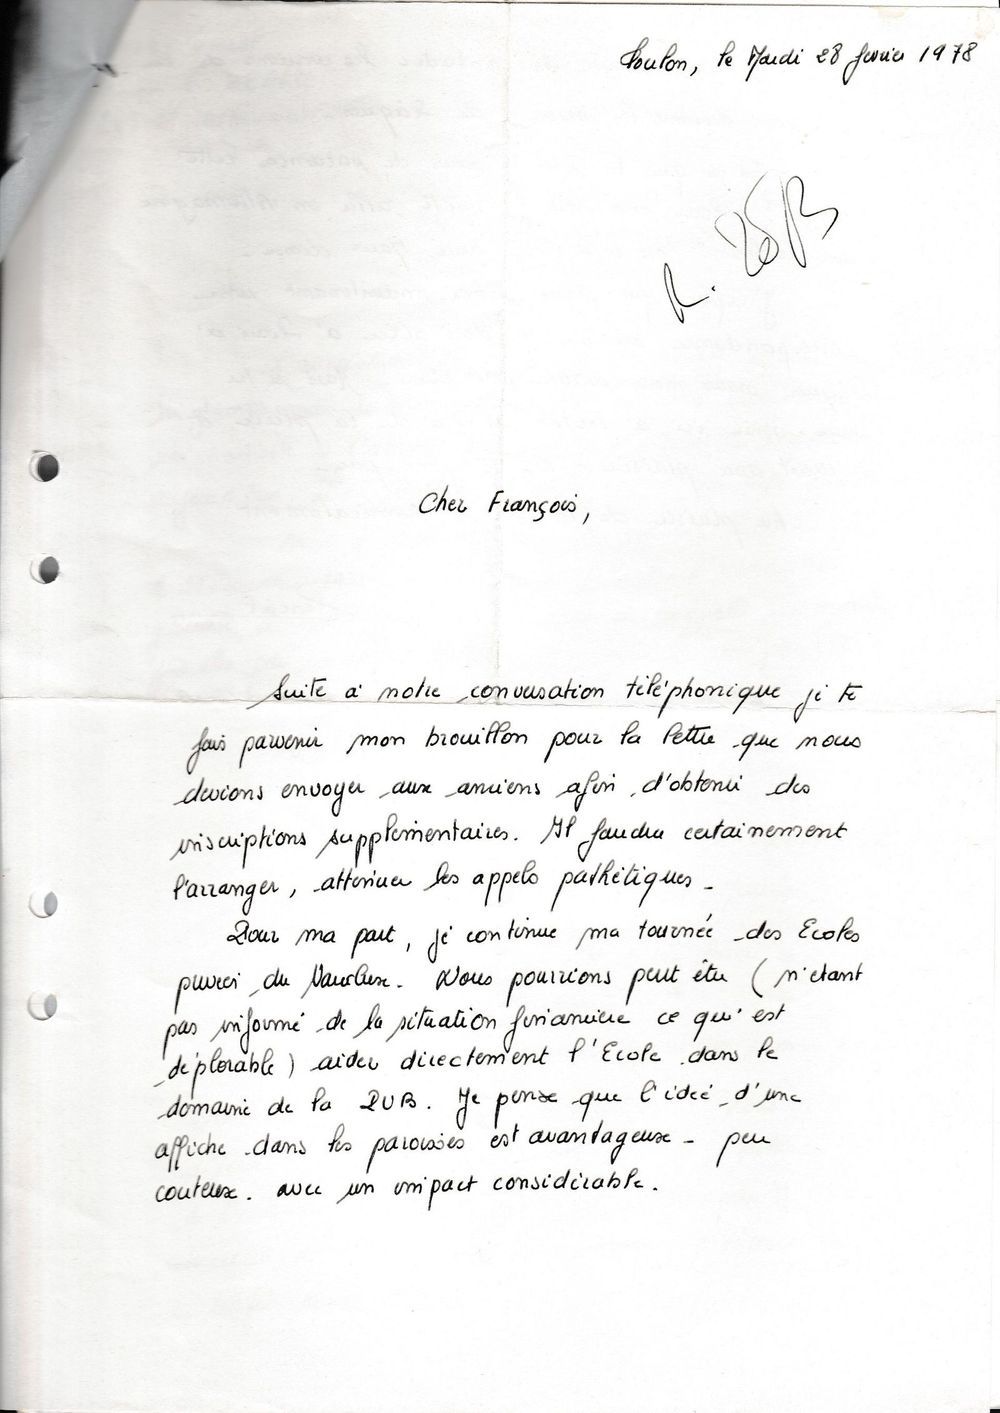 Toulon, le Mardi 28 février 1978
R. 25/3
Cher François,
Suite à notre conversation téléphonique je te
fais parvenir mon brouillon pour la lettre que nous
devions envoyer aux anciens afin d'obtenir des
inscriptions supplémentaires. Il faudra certainement
l'arranger, atténuer les appels pathétiques -
Pour ma part, je continue ma tournée des Ecoles
privées du Vaucluse. Nous pourrions peut être (n'étant
pas informé de la situation financière ce qui est
déplorable) aider directement l'Ecole dans le
domaine de la PUB. Je pense que l'idée d'une
affiche dans les paroisses est avantageuse - peu
couteuse. avec un impact considérable.